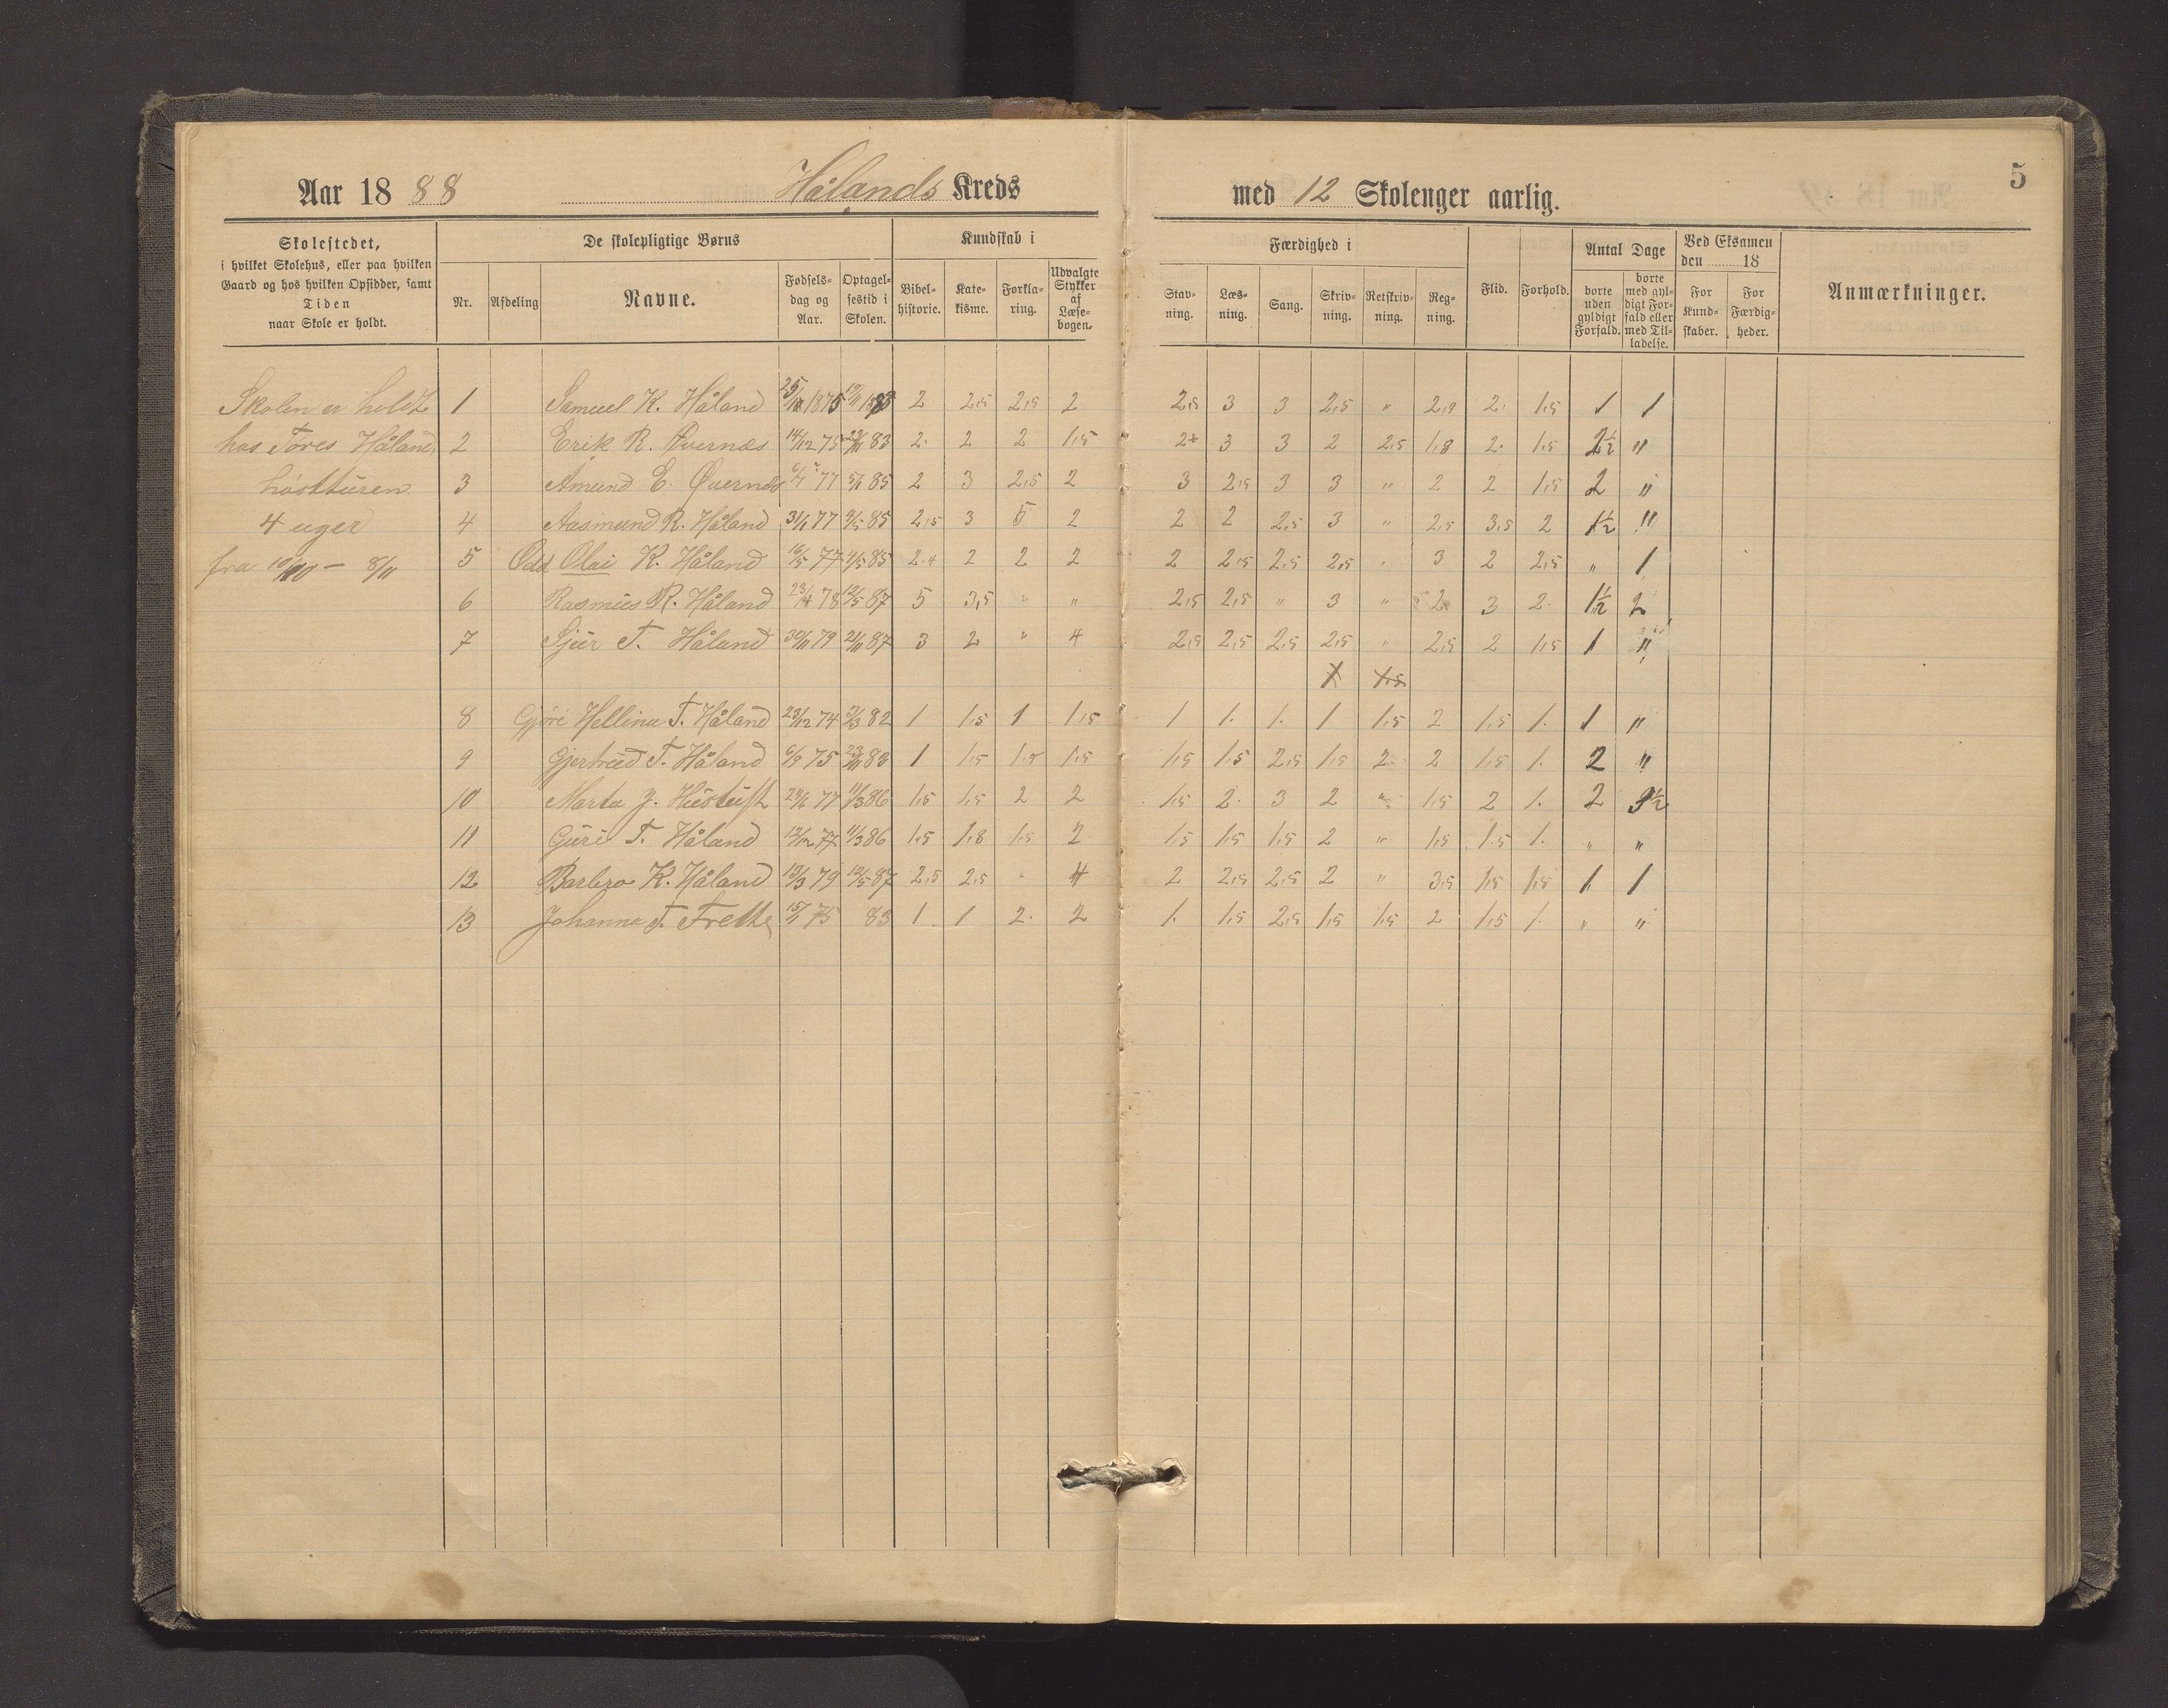 Aar 18 88 Hålands Kreds med 12 Skolenger aarlig. 5
Skolestedet, i hvilket Skolehus, eller paa hvilken Gaard og hos hvilken Opsidder, samt Tiden naar Skole er holdt.
De skolepligtige Børns
Nr. Afdeling Navne. Fødselsdag og Aar. Optagelsestid i Skolen.
Kundskab i
Bibelhistorie. Katekisme. Forklaring. Udvalgte Stykker af Læsebogen.
Færdighed i
Stavning. Læsning. Sang. Skrivning. Retskrivning. Regning.
Flid. Forhold.
Antal Dage
borte uden gyldigt Forfald. borte med gyldigt Forfald eller med Tilladelse.
Ved Eksamen den 18
For Kundskaber. For Færdigheder.
Anmærkninger.
Skolen er holdt 1 Samuel K. Håland 2 2,5 2,5 2 2,5 3 3 2,5 " 2,9 2. 1,5 1 1
hos Tøres Håland 2 Erik R. Øvernæs 14/12 75 83 2. 2 2 1,5 2 3 3 2 2,5 1,8 2. 1,5 2½ "
høstturen. 3 Åmund E. Øvernæs 77 5/11 85 2 3 2,5 2 3 2,5 3 3 " 2 2 1,5 2 "
4 uger 4 Aasmund R. Håland 31/1 77 4/5 85 2,5 3 5 2 2 2 2,5 3 " 2,5 3,5 2 1½ "
fra 10/10 - 8/11 5 Odd Olai K. Håland 16/5 77 4/5 85 2,4 2 2 2 2 2,5 2,5 2,5 " 3 2 2,5 " 1
6 Rasmus R. Håland 23/4 78 12/5 87 5 3,5 " " 2,5 2,5 " 3 " 2 3 2 1½ 2
7 Sjur T. Håland 30/11 79 21/11 87 3 2 " 4 2,5 2,5 2,5 2,5 " 2,5 2 1,5 1 "
8 Gjøri Hellina T. Håland 23/12 74 2/3 82 1 1,5 1 1,5 1 1. 1. 1 1,5 2 1,5 1. 1 "
9 Gjertrud T. Håland 6/9 75 23/11 83 1 1,5 1,5 1,5 1,5 1,5 2,5 1,5 2 2 1,5 1. 2 "
10 Marta J. 77 11/3 86 1,5 1,5 2 2 1,5 2. 3 2 " 1,5 2 1. 2 3½
11 Guri T. Håland 12/12 77 11/3 86 1,5 1,8 1,5 2 1,5 1,5 1,5 2 " 1,5 1,5 1. " "
12 Barbro K. Håland 13/3 79 12/5 87 2,5 2,5 " 4 2 2,5 2,5 2 " 3,5 1,5 1,5 1 1
13 Johanna T. Frette 15/1 75 83 1 1 2. 2 1. 1,5 2,5 1,5 1,5 2 1,5 1. " "